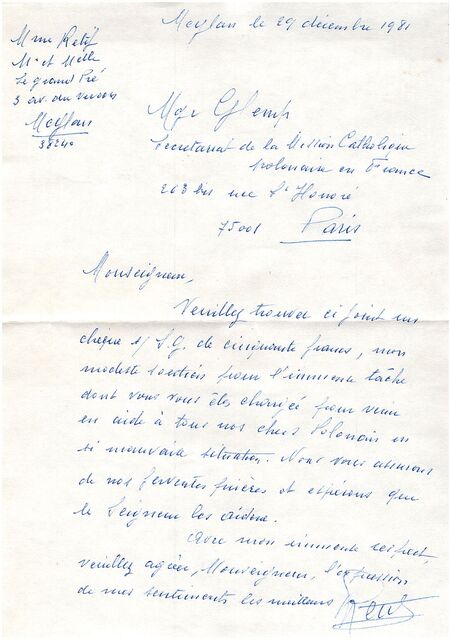 Meylan le 29 décembre 1981
Mme Retif
Mr et Melle
Le grand Pré
3 av. du Vercors
Meylan
38240
Mgr Glemp
Secretariat de la Mission Catholique
Polonaise en France
263 bis rue St Honoré
75001 Paris
Monseigneur,
Veuillez trouver ci joint un
chèque s/ S.G. de cinquante francs, mon
modeste soutien pour l'immense tâche
dont vous vous êtes chargé pour venir
en aide à tous nos chers Polonais en
si mauvaise situation. Nous vous assurons
de nos ferventes prières et espérons que
le Seigneur les aidera.
Avec mon immense respect,
veuillez agréer, Monseigneur, l'expression
de mes sentiments les meilleurs